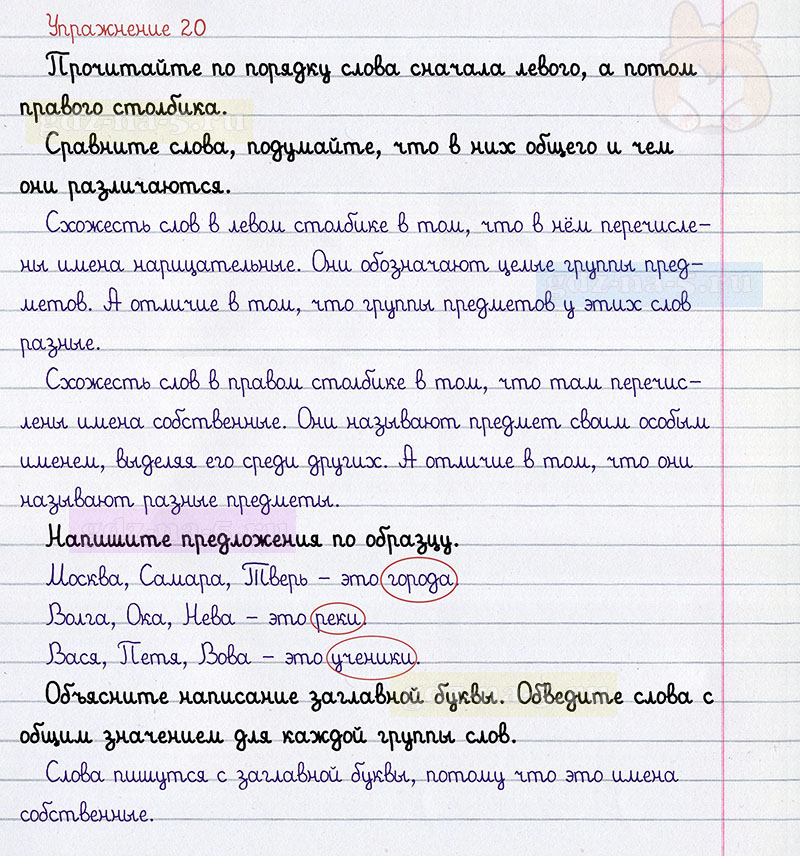 Упражнение 20
Прочитайте по порядку слова сначала левого, а потом
правого столбика.
gdz-na-5.ru
Сравните слова, подумайте, что в них общего и чем
они различаются.
Схожесть слов в левом столбике в том, что в нём перечисле-
ны имена нарицательные. Они обозначают целые группы пред-
gdz-na-5.ru
метов. А отличие в том, что группы предметов у этих слов
разные.
Схожесть слов в правом столбике в том, что там перечис-
лены имена собственные. Они называют предмет своим особым
именем, выделяя его среди других. А отличие в том, что они
называют разные предметы.
gdz-na-5.ru
Напишите предложения по образцу.
Москва, Самара, Тверь – это города.
Волга, Ока, Нева – это реки.
Вася, Петя, Вова – это ученики.
Объясните написание заглавной буквы. Обведите слова с
gdz-na-5.ru
общим значением для каждой группы слов.
Слова пишутся с заглавной буквы, потому что это имена
собственные.